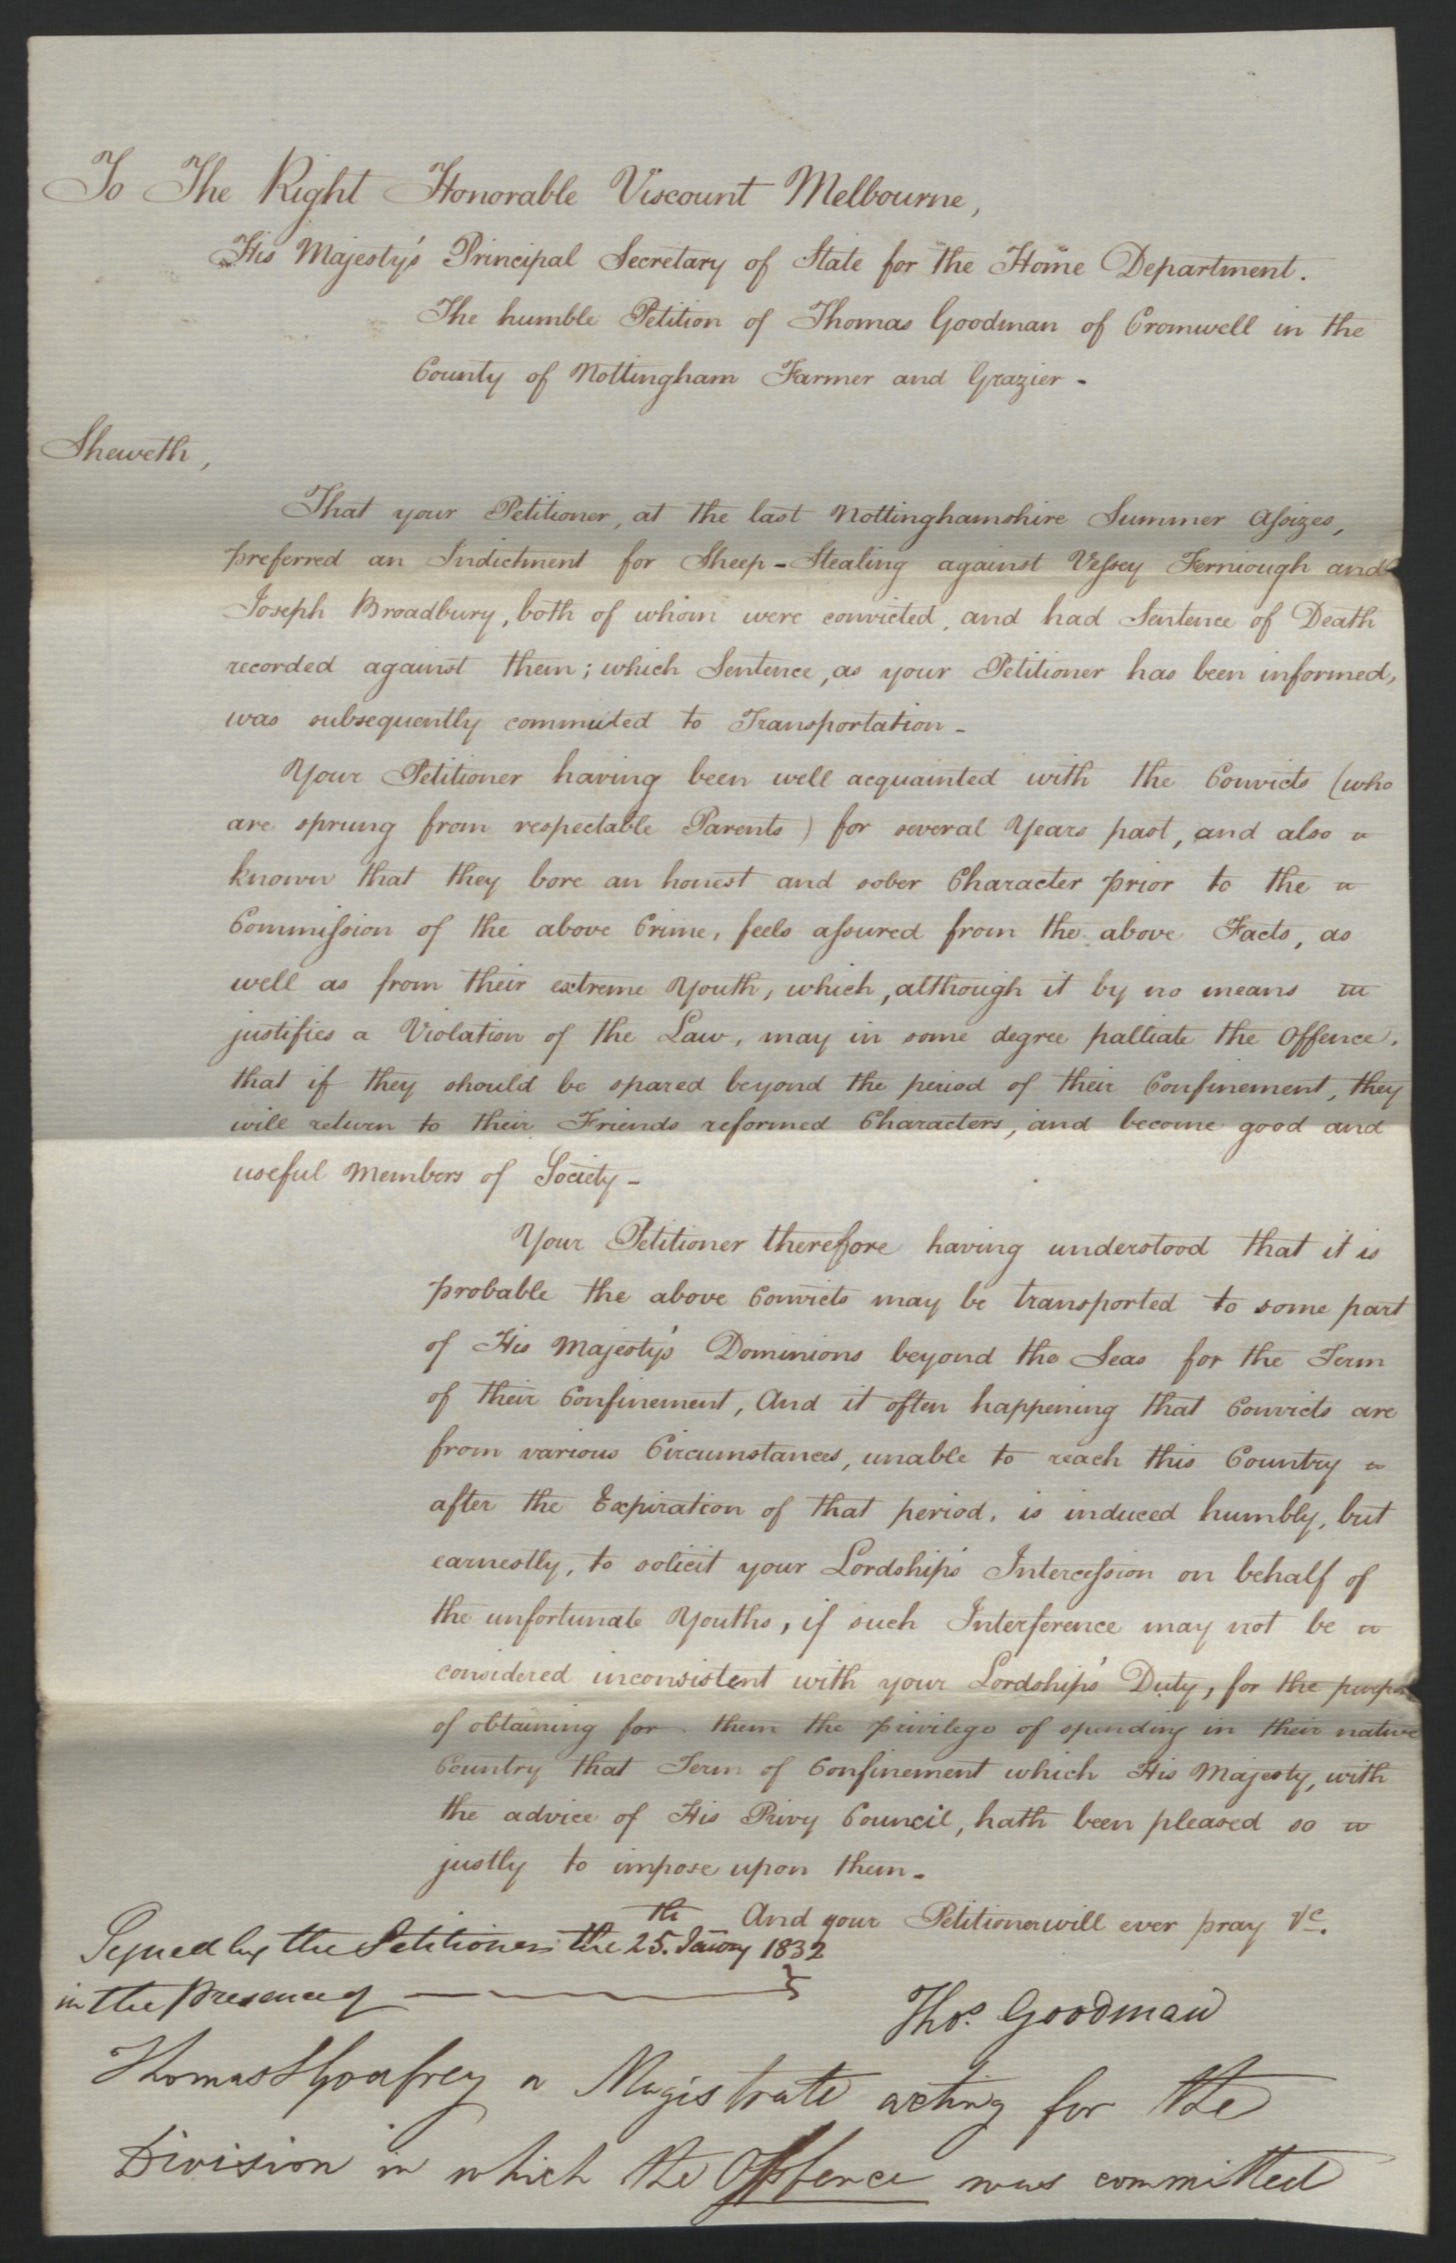 To The Right Honorable Viscount Melbourne,
His Majesty's Principal Secretary of State for the Home Department.
The humble Petition of Thomas Goodman of Cromwell in the
County of Nottingham Farmer and Grazier -
Sheweth,
That your Petitioner, at the last Nottinghamshire Summer Assizes,
preferred an Indictment for Sheep-Stealing against Vessey Ferniough and
Joseph Broadbury, both of whom were convicted, and had Sentence of Death
recorded against them; which Sentence, as your Petitioner has been informed,
was subsequently commuted to Transportation -
Your Petitioner having been well acquainted with the Convicts (who
are sprung from respectable Parents) for several Years past, and also
known that they bore an honest and sober Character prior to the
Commission of the above Crime, feels assured from the above Facts, as
well as from their extreme Youth, which, although it by no means
justifies a Violation of the Law, may in some degree palliate the Offence,
that if they should be spared beyond the period of their Confinement, they
will return to their Friends reformed Characters, and become good and
useful Members of Society -
Your Petitioner therefore having understood that it is
probable the above Convicts may be transported to some part
of His Majesty's Dominions beyond the Seas for the Term
of their Confinement, And it often happening that Convicts are
from various Circumstances, unable to reach this Country
after the Expiration of that period, is induced humbly, but
earnestly, to solicit your Lordship's Intercession on behalf of
the unfortunate Youths, if such Interference may not be
considered inconsistent with your Lordships' Duty, for the purpose
of obtaining for them the privilege of spending in their native
Country that Term of Confinement which His Majesty, with
the advice of His Privy Council, hath been pleased so
justly to impose upon them -
And your Petitioner will ever pray &c.
Signed by the Petitioner the 25th January 1832
in the presence of
Thos. Goodman
Thomas S Godfrey a Magistrate acting for the
Division in which the Offence was committed